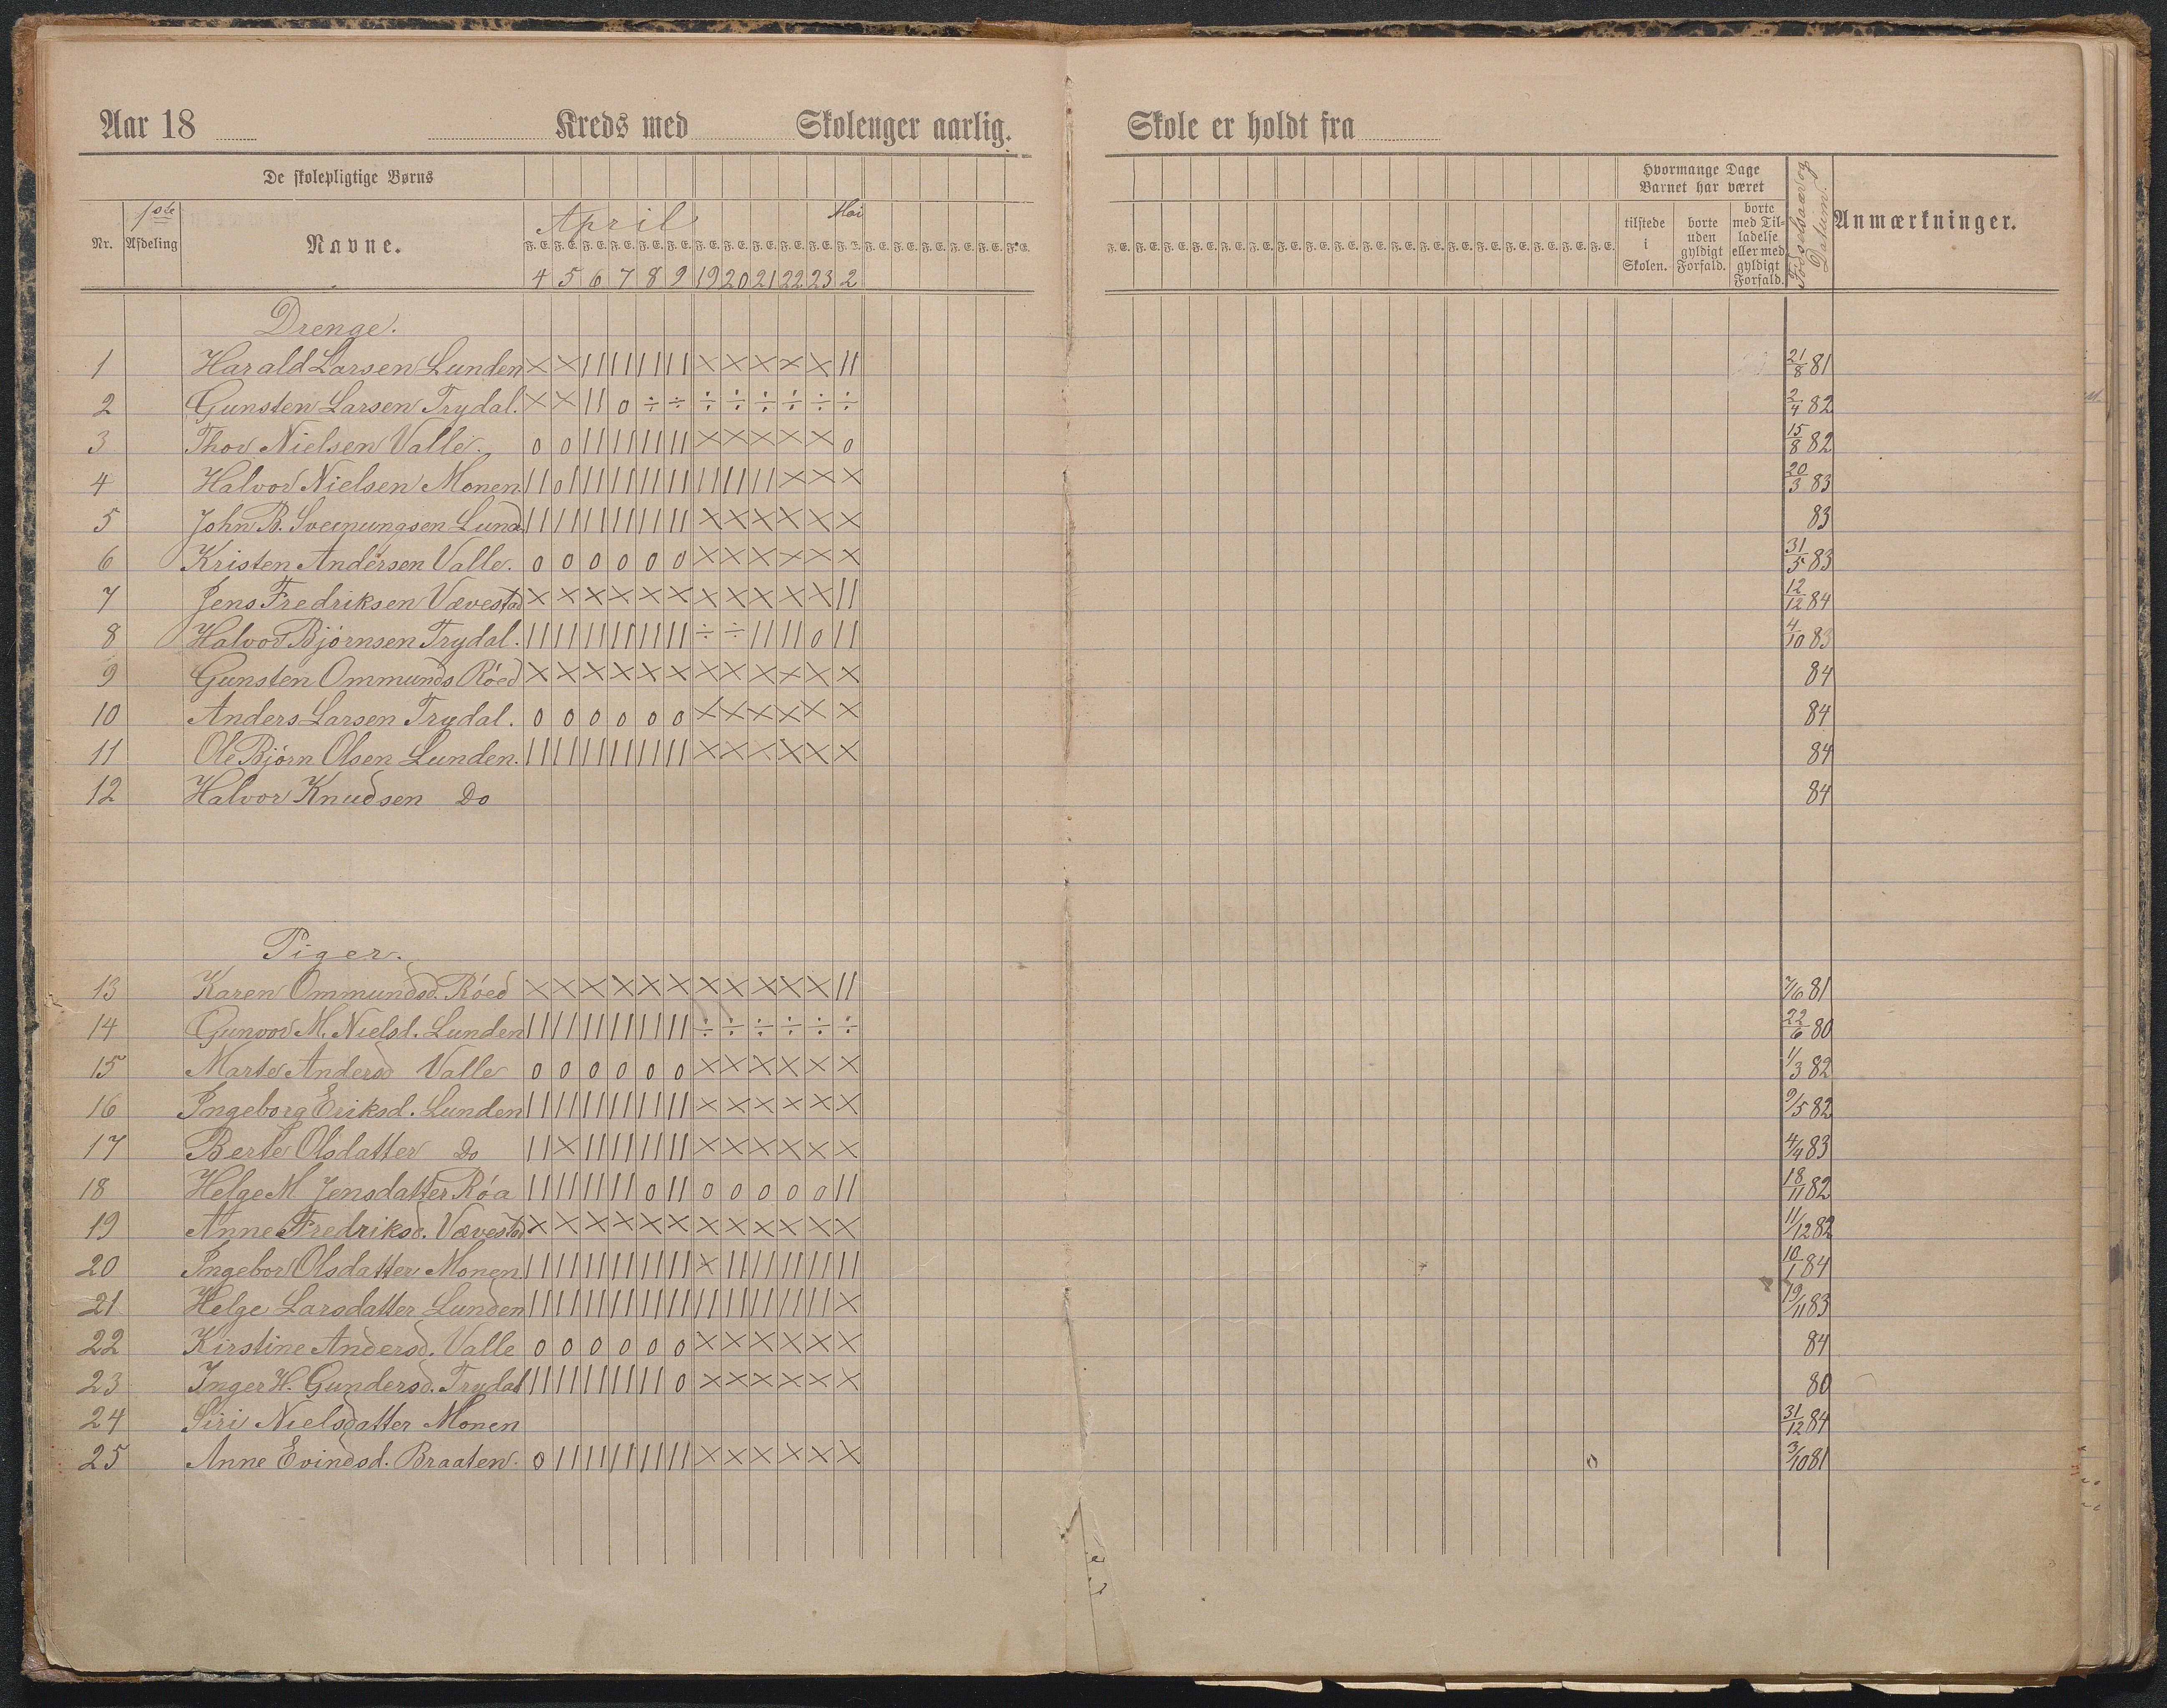 Aar 18 Kreds med Skolenger aarlig. Skole er holdt fra
De skolepligtige Børns Hvormange Dage Barnet har været
Nr. 1ste Afdeling Navne. April Mai tilstede i Skolen. borte uden gyldigt Forfald. borte med Tilladelse eller med gyldigt Forfald. Fødselsaar og Datum. Anmærkninger.
F. E. F. E. F. E. F. E. F. E. F. E. F. E. F. E. F. E. F. E. F. E. F. E. F. E. F. E. F. E. F. E. F. E. F. E.
4 5 6 7 8 9 19 20 21 22 23 2
Drenge.
1 Harald Larsen Lunden × × || || || || × × × × × || 21/8 81
2 Gunsten Larsen Trydal. × × || o ÷ ÷ ÷ ÷ ÷ ÷ ÷ ÷ 2/4 82
3 Thor Nielsen Valle. o o || || || || × × × × × o 15/8 82
4 Halvor Nielsen Monen. || o| || || || || || || || × × × 20/3 83
5 John B. Sveinungsen Lund. || || || || || || × × × × × × 83
6 Kristen Andersen Valle. o o o o o o × × × × × × 31/5 83
7 Jens Fredriksen Vævestad × × × × × × × × × × × || 12/12 84
8 Halvor Bjørnsen Trydal. || || || || || || ÷ ÷ || || o || 4/10 83
9 Gunsten Ommunds Røed × × × × × × × × × × × × 84
10 Anders Larsen Trydal. o o o o o o × × × × × × 84
11 Ole Bjørn Olsen Lunden. || || || || || || × × × × × × 84
12 Halvor Knudsen Do 84
Piger.
13 Karen Ommundsd. Røed × × × × × × × × × × × || 7/6 81
14 Gunvor M. Nielsd. Lunden || || || || || || ÷ ÷ ÷ ÷ ÷ ÷ 22/6 80
15 Marte Andersd Valle o o o o o o × × × × × × 1/3 82
16 Ingeborg Eriksd. Lunden || || || || || || × × × × × × 9/5 82
17 Berte Olsdatter Do || × || || || || × × × × × × 4/4 83
18 Helge M Jensdatter Røa || || || || o || o o o o o || 18/11 82
19 Anne Fredriksd. Vævestad × × × × × × × × × × × × 11/12 82
20 Ingebor Olsdatter Monen. || || || || || || × || || || || || 10/1 84
21 Helge Larsdatter Lunden || || || || || || || || || || || × 19/11 83
22 Kirstine Andersd. Valle o o o o o o × × × × × × 84
23 Inger H. Gundersd. Trydal || || || || || o × × × × × × 80
24 Siri Nielsdatter Monen 31/12 84
25 Anne Evindsd. Braaten. o || || || || || × × × × × × o 3/10 81